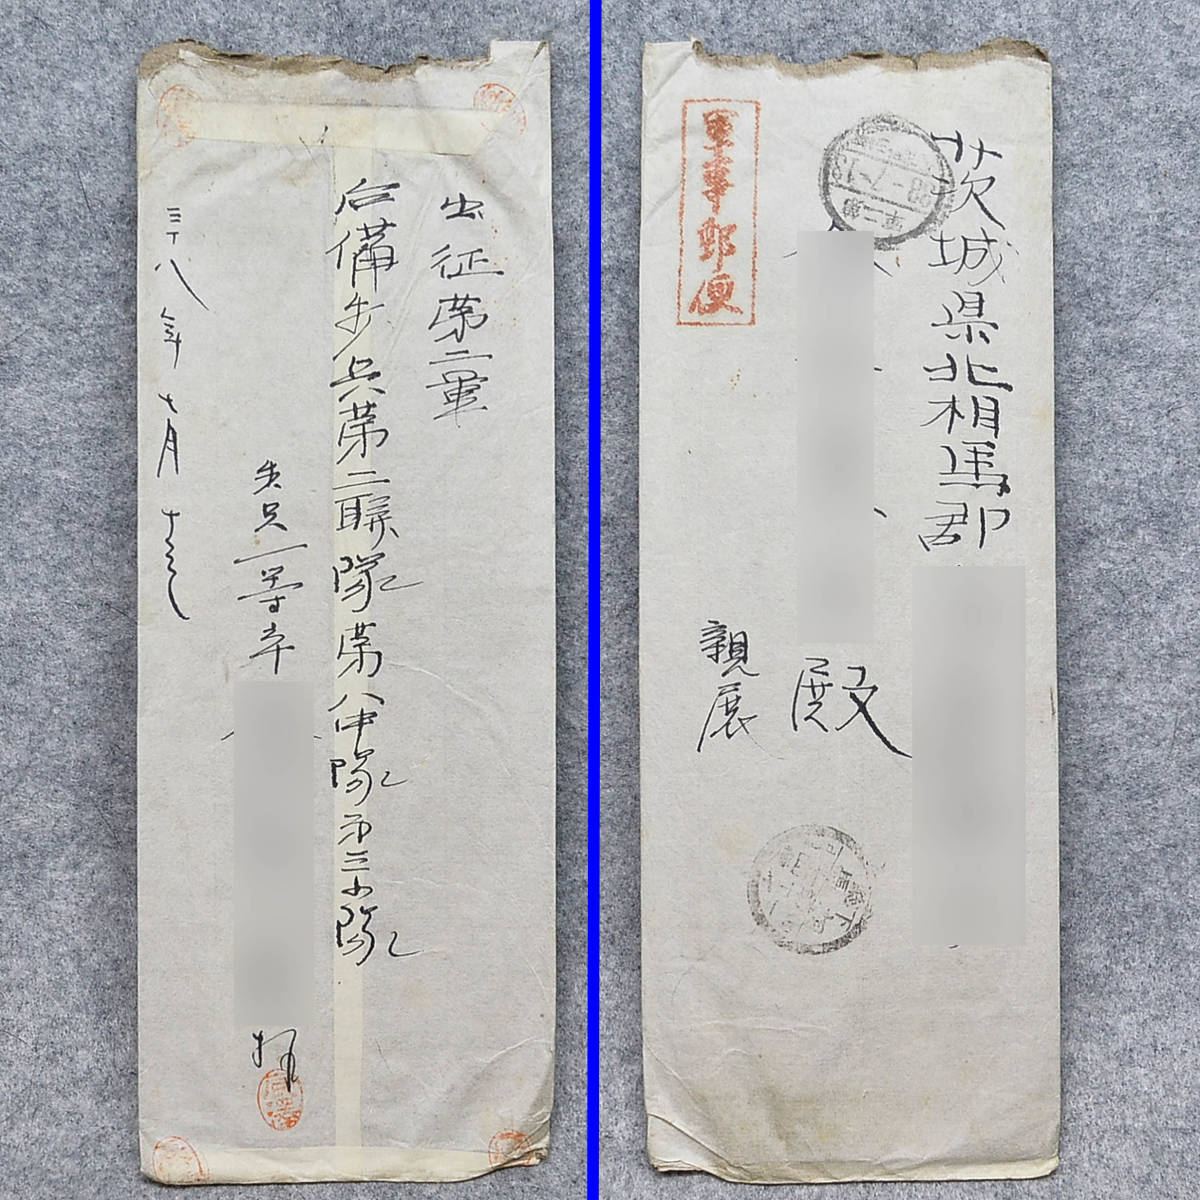 出征第二軍
后備歩兵第二聯隊第八中隊第三小隊
一等卒
拝
三十八年七月十三
軍事郵便
茨城県北相馬郡
殿
親展